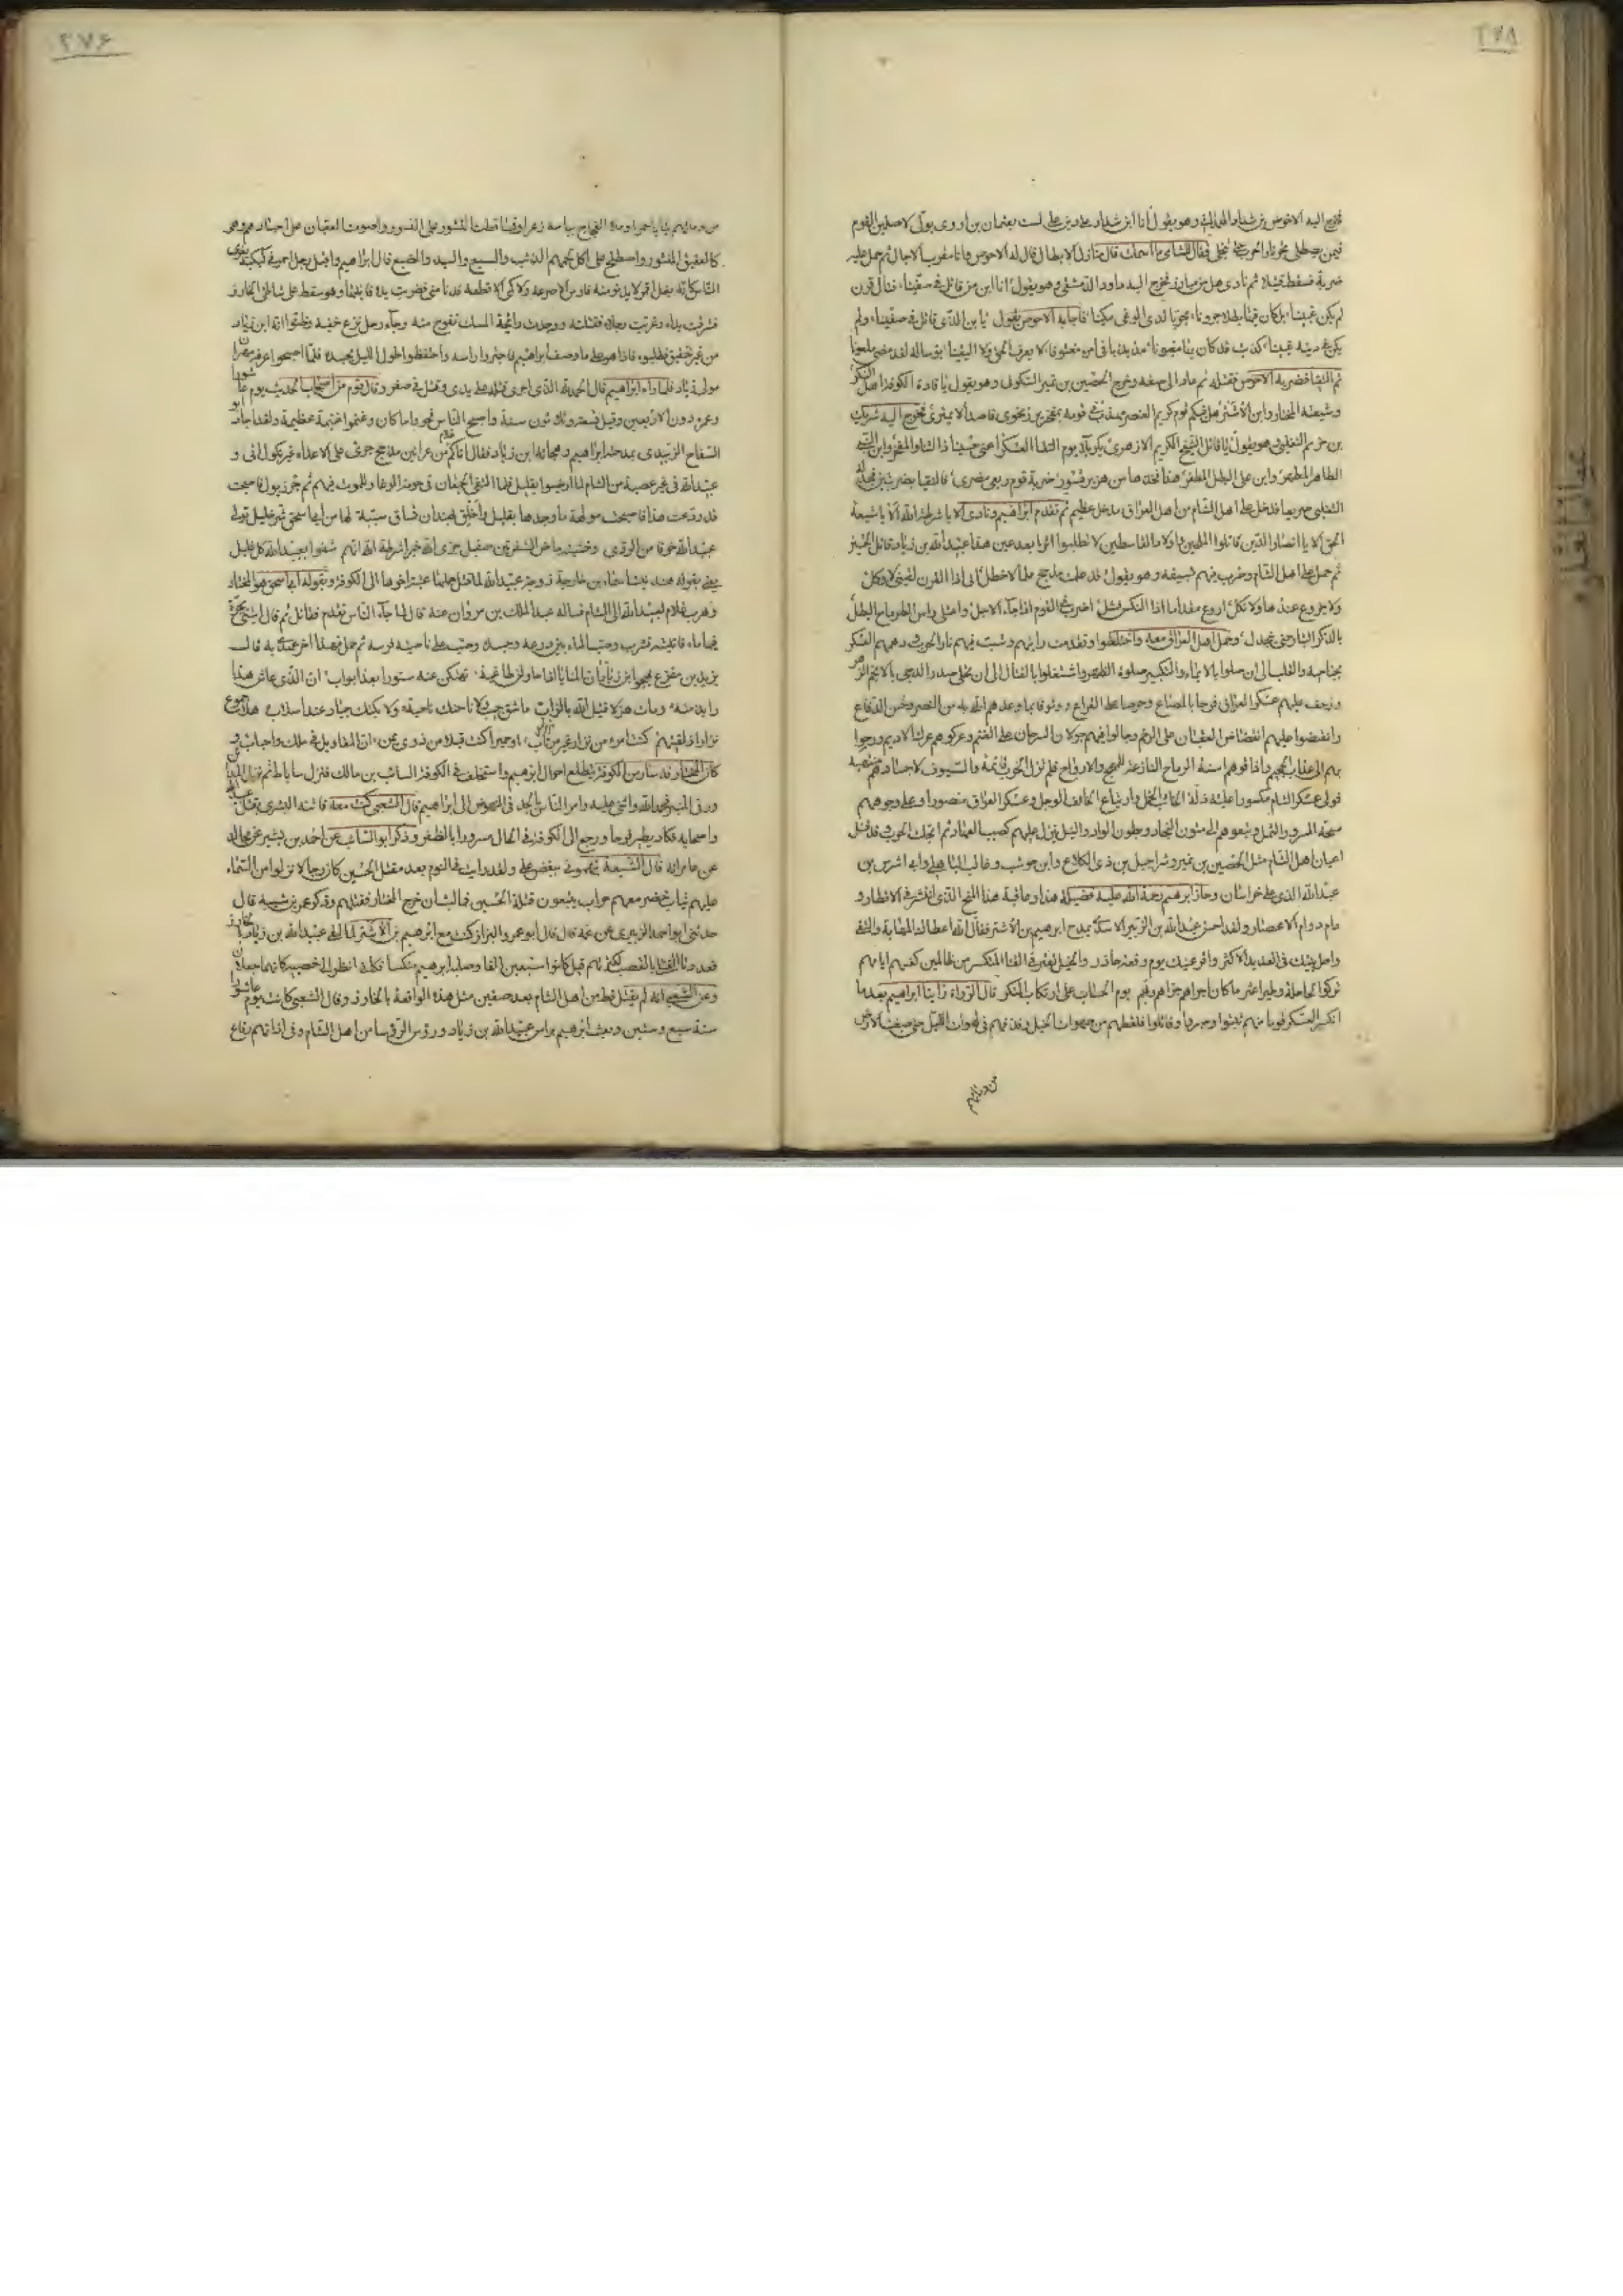 ٢٧٨
فخرج اليه الاحوص بن شداد الهمداني وهو يقول انا ابن شداد على دين على لست بعثمان بن اروى بولى لاصلين القوم
فيمن يصطلى بحر نار الحرب حتى تنجلى فقال للشامى ما اسمك قال منازل الابطال قال له الاحوص وانا مقرب الاجال ثم حمل عليه
ضربة فسقط قتيلا ثم نادى هل من مبارز فخرج اليه داود الدمشقى وهو يقول انا ابن من قاتل فى صفينا قتال قرن
لم يكن غبينا بل كان فينا بطلا حرونا مجربا لدى الوغى مكينا فاجابه الاحوص يقول يا بن الذى قاتل فى صفينا ولم
يكن فى دينه غبينا كذبت قد كان بها مغبونا مذبذبا فى امره مفتونا لا يعرف الحق ولا اليقينا بؤسا له لقد مضى ملعونا
ثم التقيا فضربه الاحوص فقتله ثم عاد الى صفه وخرج الحصين بن نمير السكونى وهو يقول يا قادة الكوفة اهل المنكر
وشيعة المختار وابن الاشتر هل فيكم قوم كريم العنصر مهذب فى قومه بمفخر يبرز نحوى قاصدا لا يمترى فخرج اليه شريك
بن خزيم التغلبى وهو يقول يا قاتل الشيخ الكريم الازهرى بكربلا يوم التقاء العسكر اعنى حسينا ذا الثنا والمفخر وابن النبى
الطاهر المطهر وابن على البطل المظفر هذا فخذها من هزبر قسور ضربة قوم ربعى مضرى فالتقيا بضربتين فجدله
التغلبى صريعا فدخل على اهل الشام من اهل العراق مدخل عظيم ثم تقدم ابراهيم ونادى الا يا شرطة الله الا يا شيعة
الحق الا يا انصار الدين قاتلوا المحلين واولاد القاسطين لا تطلبوا اثرا بعد عين هذا عبيد الله بن زياد قاتل الحسين
ثم حمل على اهل الشام وضرب فيهم بسيفه وهو يقول قد علمت مذحج علما لا خطل انى اذا القرن لقينى لا وكل
ولا جزوع عندها ولا نكل اروع مقداما اذا النكس فشل اضرب فى القوم اذا جاء الاجل واعتلى راس الطرماح البطل
بالذكر البتار حتى ينجدل وحمل اهل العراق معه واختلطوا وتقدمت رايتهم وشبت فيهم نار الحرب ودهمهم العسكر
بجناحيه والقلب الى ان صلوا بالايماء والتكبير صلوة الظهر واشتغلوا بالقتال الى ان تحلى صدر الدجى بالانجم الزهر
وزحف عليهم عسكر العراق فرحا بالمصاع وحرصا على القراع ووثوقا بما وعدهم الله به من النصر وحسن الدفاع
وانقضوا عليهم انقضاض العقبان على الرخم وجالوا فيهم جولان السرحان على الغنم وعركوهم عرك الاديم ورجوا
بهم الى عذاب الجحيم واذاقوهم اسنة الرماح النازعة للمهج والارواح فلم تزل الحرب قائمة والسيوف لاجسادهم منتهبه
فولى عسكر الشام مكسورا عليه ذلة الخائب الخجل وارتياع الخائف الوجل وعسكر العراق منصورا وعلى وجوههم
مسحة المسرور الثمل وتبعوهم الى متون النجاد وبطون الاوهاد والنبل ينزل عليهم كصيب العهاد ثم انجلت الحرب وقد قتل
اعيان اهل الشام مثل الحصين بن نمير وشراحيل بن ذى الكلاع وابن حوشب وغالب الباهلى وابى اشرس بن
عبد الله الذى على خراسان وحاز ابرهيم رحمة الله عليه فضيلة هذا وعاقبة هذا الفتح الذى انتشر فى الاقطار و
دام دوام الاعصار ولقد احسن عبد الله بن الزبير الاسدى يمدح ابرهيم بن الاشتر فقال الله اعطاك المهابة والتقى
واحل بيتك فى العديد الاكثر واقر عينك يوم وقعة خازر والخيل تعثر فى القنا المتكسر من ظالمين كفتهم ايامهم
تركوا لحاجلة وطير اعثر ما كان اجراهم جزاهم ربهم يوم الحساب على ارتكاب المنكر قال الرواة راينا ابراهيم بعد ما
انكسر العسكر قوما منهم ثبتوا وصبروا وقاتلوا فلقطهم من صهوات الخيل وقذفهم فى لهوات الليل حتى صبغت الارض
من دمائهم
٢٧۶
من دمائهم ثيابا حمرا وملا الفجاج بباسه ذعرا وقناقطت النسور على النسور واهوت العقبان على اجسادهم وهى
كالعقيق المنثور واصطلح على اكل لحمهم الذئب والسبع والسيد والضبع قال ابراهيم واقبل رجل احمر فى كبكبة يفرى
الناس كانه بغل اقمر لا يدنو منه فارس الا صرعه ولا كمى الا قطعه فدنا منى فضربت يده فابنتها وهو سقط على شاطئ الخازر
فشرقت يداه وغربت رجلاه فقتلته ووجدت رائحة المسك تفوح منه وجاء رجل نزع خفيه وظنوا انه ابن زياد
من غير تحقيق فطلبوه فاذا هو على ما وصف ابراهيم فاجتزوا راسه واحتفظوا طول الليل بجسده فلما اصبحوا عرفه مهران
مولى زياد فلما راه ابراهيم قال الحمد لله الذى اجرى قتله على يدى وقتل فى صفر وقال قوم من اصحاب الحديث يوم عاشورا
وعمره دون الاربعين وقيل تسعة وثلثون سنة واصبح الناس فحووا ما كان وغنموا غنيمة عظيمة ولقد اجاد ابو
السفاح الزبيدى بمدحه ابراهيم وهجائه ابن زياد فقال اتاكم غلام من عرانين مذحج جرى على الاعداء غير نكول اتى و
عبيد الله فى غير عصبة من الشام لما ارضيوا بقليل فلما التقى الجمعان فى حومة الوغا وللموت فيهم ثم جر ذيول فاصبحت
قد ودعت هذا فاصبحت مولهة ما وجدها بقليل واخلق بهند ان تساق سبية لها من ابى اسحق شر خليل تولى
عبيد الله خوفا من الردى وخشيه ماضى الشفرتين صقيل جزى الله خيرا شرطة الله انهم شفوا بعبيد الله كل غليل
يعنى بقوله هند بنت اسماء بن خارجة زوجة عبيد الله لما قتل حملها عتبة اخوها الى الكوفة وبقوله ابى اسحق هو المختار
وهرب غلام لعبيد الله الى الشام فساله عبد الملك بن مروان عنه قال لما جاء الناس تقدم فقاتل ثم قال ائتنى بجرة
فيها ماء فاتيته فشرب وصب الماء بين درعه وجسده وصب على ناصية فرسه ثم حمل فهذا اخر عهدى به قال
يزيد بن مفرغ يهجو ابن زياد ان المنايا اذا حاولن طاغية هتكن عنه ستورا بعد ابواب ان الذى عاش غدارا
بذمته ومات هزلا قتيل الله بالزاب ما شق جيب ولا ناحتك نائحة ولا بكتك جياد عند اسلاب هلا جموع
نزار اذ لقيتهم كنت امرء من نزار غير مرتاب او حمير كنت قيلا من ذوى يمن ان المقاويل فى ملك واحباب و
كان المختار قد سار من الكوفة يتطلع احوال ابرهيم واستخلف فى الكوفة السائب بن مالك فنزل ساباط ثم نزل المدائن
ورقى المنبر فحمد الله واثنى عليه وامر الناس بالجد فى النهوض الى ابراهيم قال الشعبى كنت معه فاتته البشرى بقتل عبيد الله
واصحابه فكاد يطير فرحا ورجع الى الكوفة فى الحال مسرورا بالظفر وذكر ابو السائب عن احمد بن بشير عن مجالد
عن عامر انه قال الشيعة يتهمونى ببغض على ولقد رايت فى النوم بعد مقتل الحسين كان رجالا نزلوا من السماء
عليهم ثياب خضر معهم حراب يتبعون قتلة الحسين فما لبثت ان خرج المختار فقتلهم وذكر عمر بن شبة قال
حدثنى ابو احمد الزبيرى عن عمه قال قال ابو عمر والبزاز كنت مع ابرهيم بن الاشتر لما لقى عبيد الله بن زياد بالخازر
فعددنا القتلى بالقصب لكثرتهم قيل كانوا سبعين الفا وصلب ابرهيم منكسا فكانى انظر الى خصييه كانهما جعلان
وعن الشعبى انه لم يقتل قط من اهل الشام بعد صفين مثل هذه الواقعة بالخازر وقال الشعبى كانت يوم عاشورا
سنة سبع وستين وبعث ابرهيم براس عبيد الله بن زياد ورؤس الرؤسا من اهل الشام وفى اذانهم رقاع